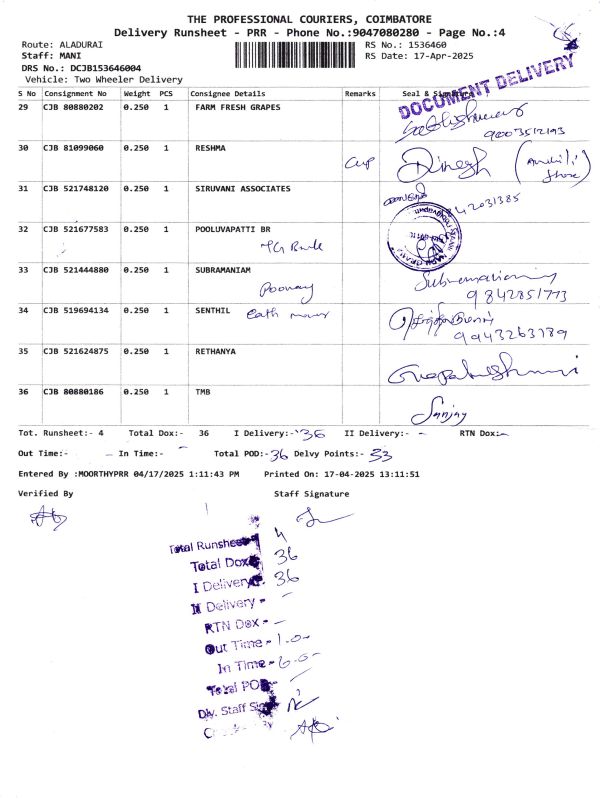 THE PROFESSIONAL COURIERS, COIMBATORE
Delivery Runsheet - PRR - Phone No.:9047080280 - Page No.:4
Route: ALADURAI
RS No.: 1536460
Staff: MANI
RS Date: 17-Apr-2025
DRS No.: DCJB153646004
Vehicle: Two Wheeler Delivery
DOCUMENT DELIVERY
S No Consignment No Weight PCS Consignee Details Remarks Seal & Signature
29 CJB 80880202 0.250 1 FARM FRESH GRAPES
9003512193
30 CJB 81099060 0.250 1 RESHMA
Dinesh
31 CJB 521748120 0.250 1 SIRUVANI ASSOCIATES
9842031385
32 CJB 521677583 0.250 1 POOLUVAPATTI BR
33 CJB 521444880 0.250 1 SUBRAMANIAM
9842851773
34 CJB 519694134 0.250 1 SENTHIL
9943263789
35 CJB 521624875 0.250 1 RETHANYA
36 CJB 80880186 0.250 1 TMB
Sanjay
Tot. Runsheet:- 4 Total Dox:- 36 I Delivery:- 36 II Delivery:- - RTN Dox:-
Out Time:- - In Time:- - Total POD:- 36 Delvy Points:- 33
Entered By :MOORTHYPRR 04/17/2025 1:11:43 PM Printed On: 17-04-2025 13:11:51
Verified By Staff Signature
Total Runsheet 4
Total Dox 36
I Delivery 36
II Delivery - -
RTN Dox - -
Out Time - 1.0-
In Time - 6.0-
Total POD -
Dly. Staff Sign